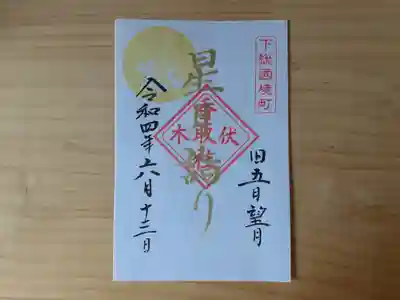 下総國境町
旧五月望月
星 詣り
香取社
伏木
令和四年六月十三日